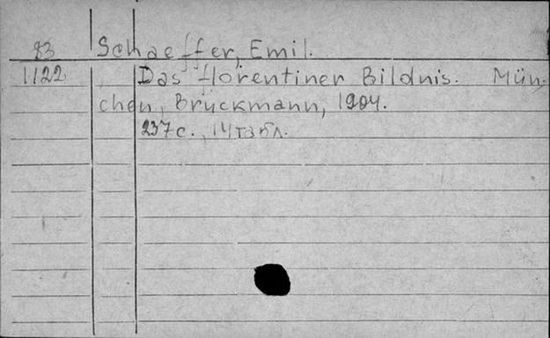 83 Schaeffer, Emil.
1122 Das florentiner Bildnis. Mün-
chen, Bruckmann, 1904.
237 с.,